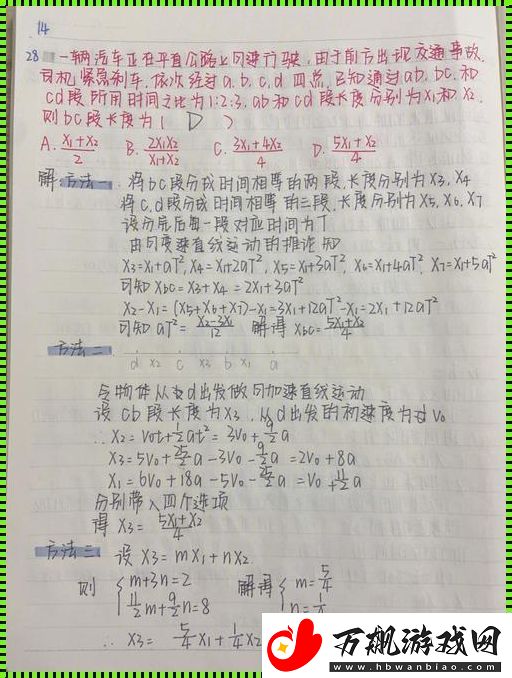 14
28 一辆汽车正在平直公路上匀速行驶,由于前方出现交通事故,
司机紧急刹车,依次经过a.b.c.d 四点,已知通过ab,bc,和
cd段所用时间之比为1:2:3,ab和cd段长度分别为X₁和X₂,
则bc段长度为( D )
A. X₁+X₂/2 B. 2X₁X₂/X₁+X₂ C. 3X₁+4X₂/4 D. 5X₁+X₂/4
解:方法一:将bc段分成时间相等的两段,长度分别为X₃,X₄
将c,d段分成时间相等的三段,长度分别为X₅,X₆,X₇
设分完后每一段对应时间为T
由匀变速直线运动的推论知
X₃=X₁+aT²,X₄=X₁+2aT²,X₅=X₁+3aT²,X₆=X₁+4aT²,X₇=X₁+5aT²
可知Xbc=X₃+X₄=2X₁+3aT²
X₂-X₁=(X₅+X₆+X₇)-X₁=3X₁+12aT²-X₁=2X₁+12aT²
可知aT²=X₂-3X₁/12 解得Xbc=5X₁+X₂/4
方法二
d X₂ c X₃ b X₁ a
令物体从d出发做匀加速直线运动
设cb段长度为X₃,从d出发的初速度为V₀
∴X₂=V₀t+½at²=3V₀+9/2a
X₃=5V₀+25/2a-3V₀-9/2a=2V₀+8a
X₁=6V₀+18a-5V₀-25/2a=V₀+11/2a
分别带入四个选项
得X₃=5X₁+X₂/4
方法三 设X₃=mX₁+nX₂
则 {m+3n=2 解得 {m=5/4
11/2m+9/2n=8 n=1/4
∴X₃=5/4X₁+1/4X₂
万飙游戏网
www.hbwanbiao.com